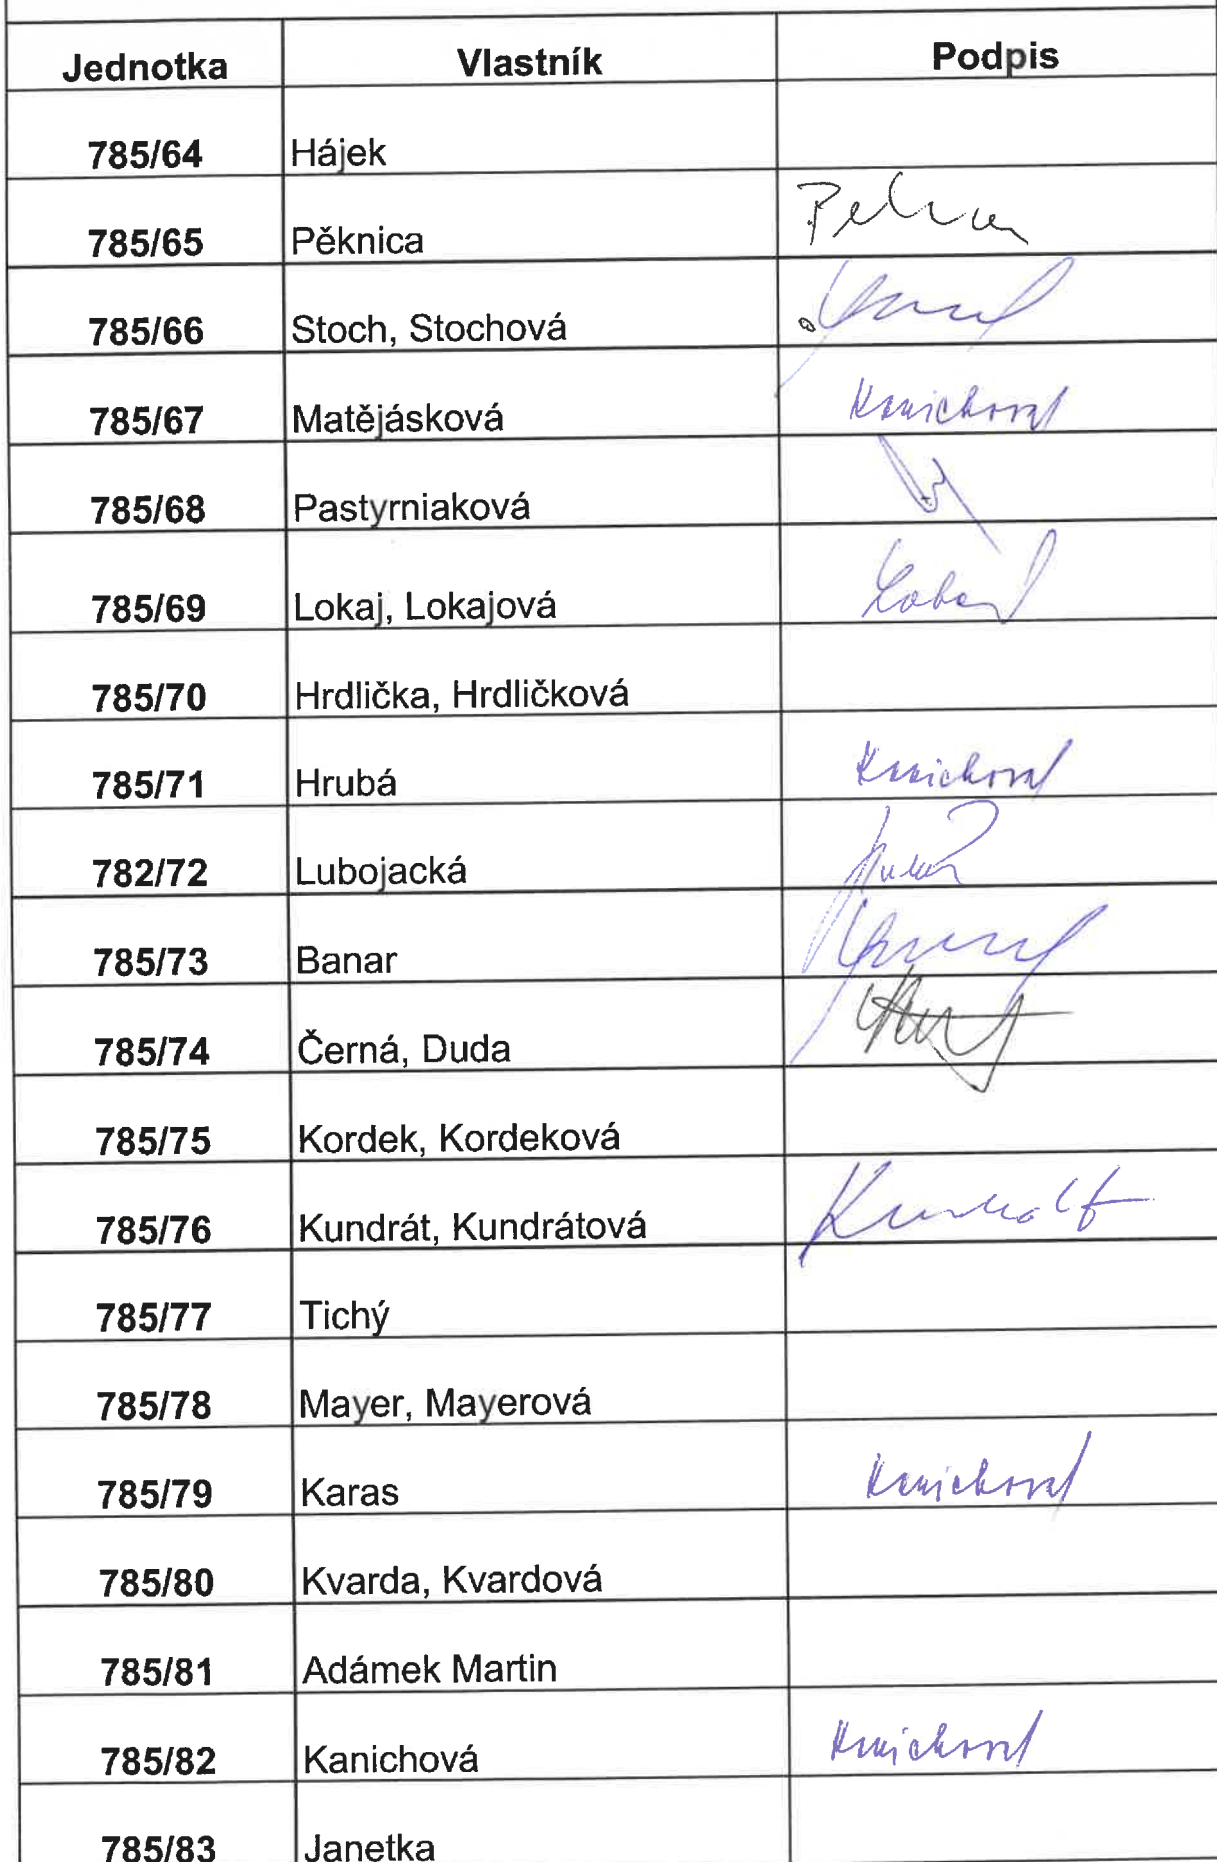 Jednotka Vlastník Podpis
785/64 Hájek
785/65 Pěknica
785/66 Stoch, Stochová
785/67 Matějásková Kanichová
785/68 Pastyrniaková
785/69 Lokaj, Lokajová
785/70 Hrdlička, Hrdličková
785/71 Hrubá Kanichová
782/72 Lubojacká
785/73 Banar
785/74 Černá, Duda
785/75 Kordek, Kordeková
785/76 Kundrát, Kundrátová
785/77 Tichý
785/78 Mayer, Mayerová
785/79 Karas Kanichová
785/80 Kvarda, Kvardová
785/81 Adámek Martin
785/82 Kanichová Kanichová
785/83 Janetka